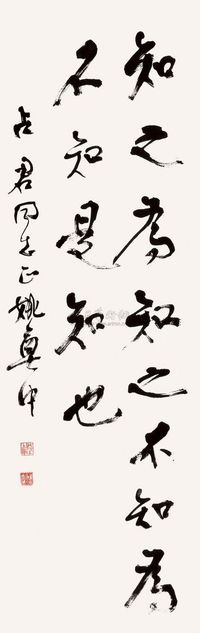 知之為知之不知為
不知是知也
占君同志正姚奠中